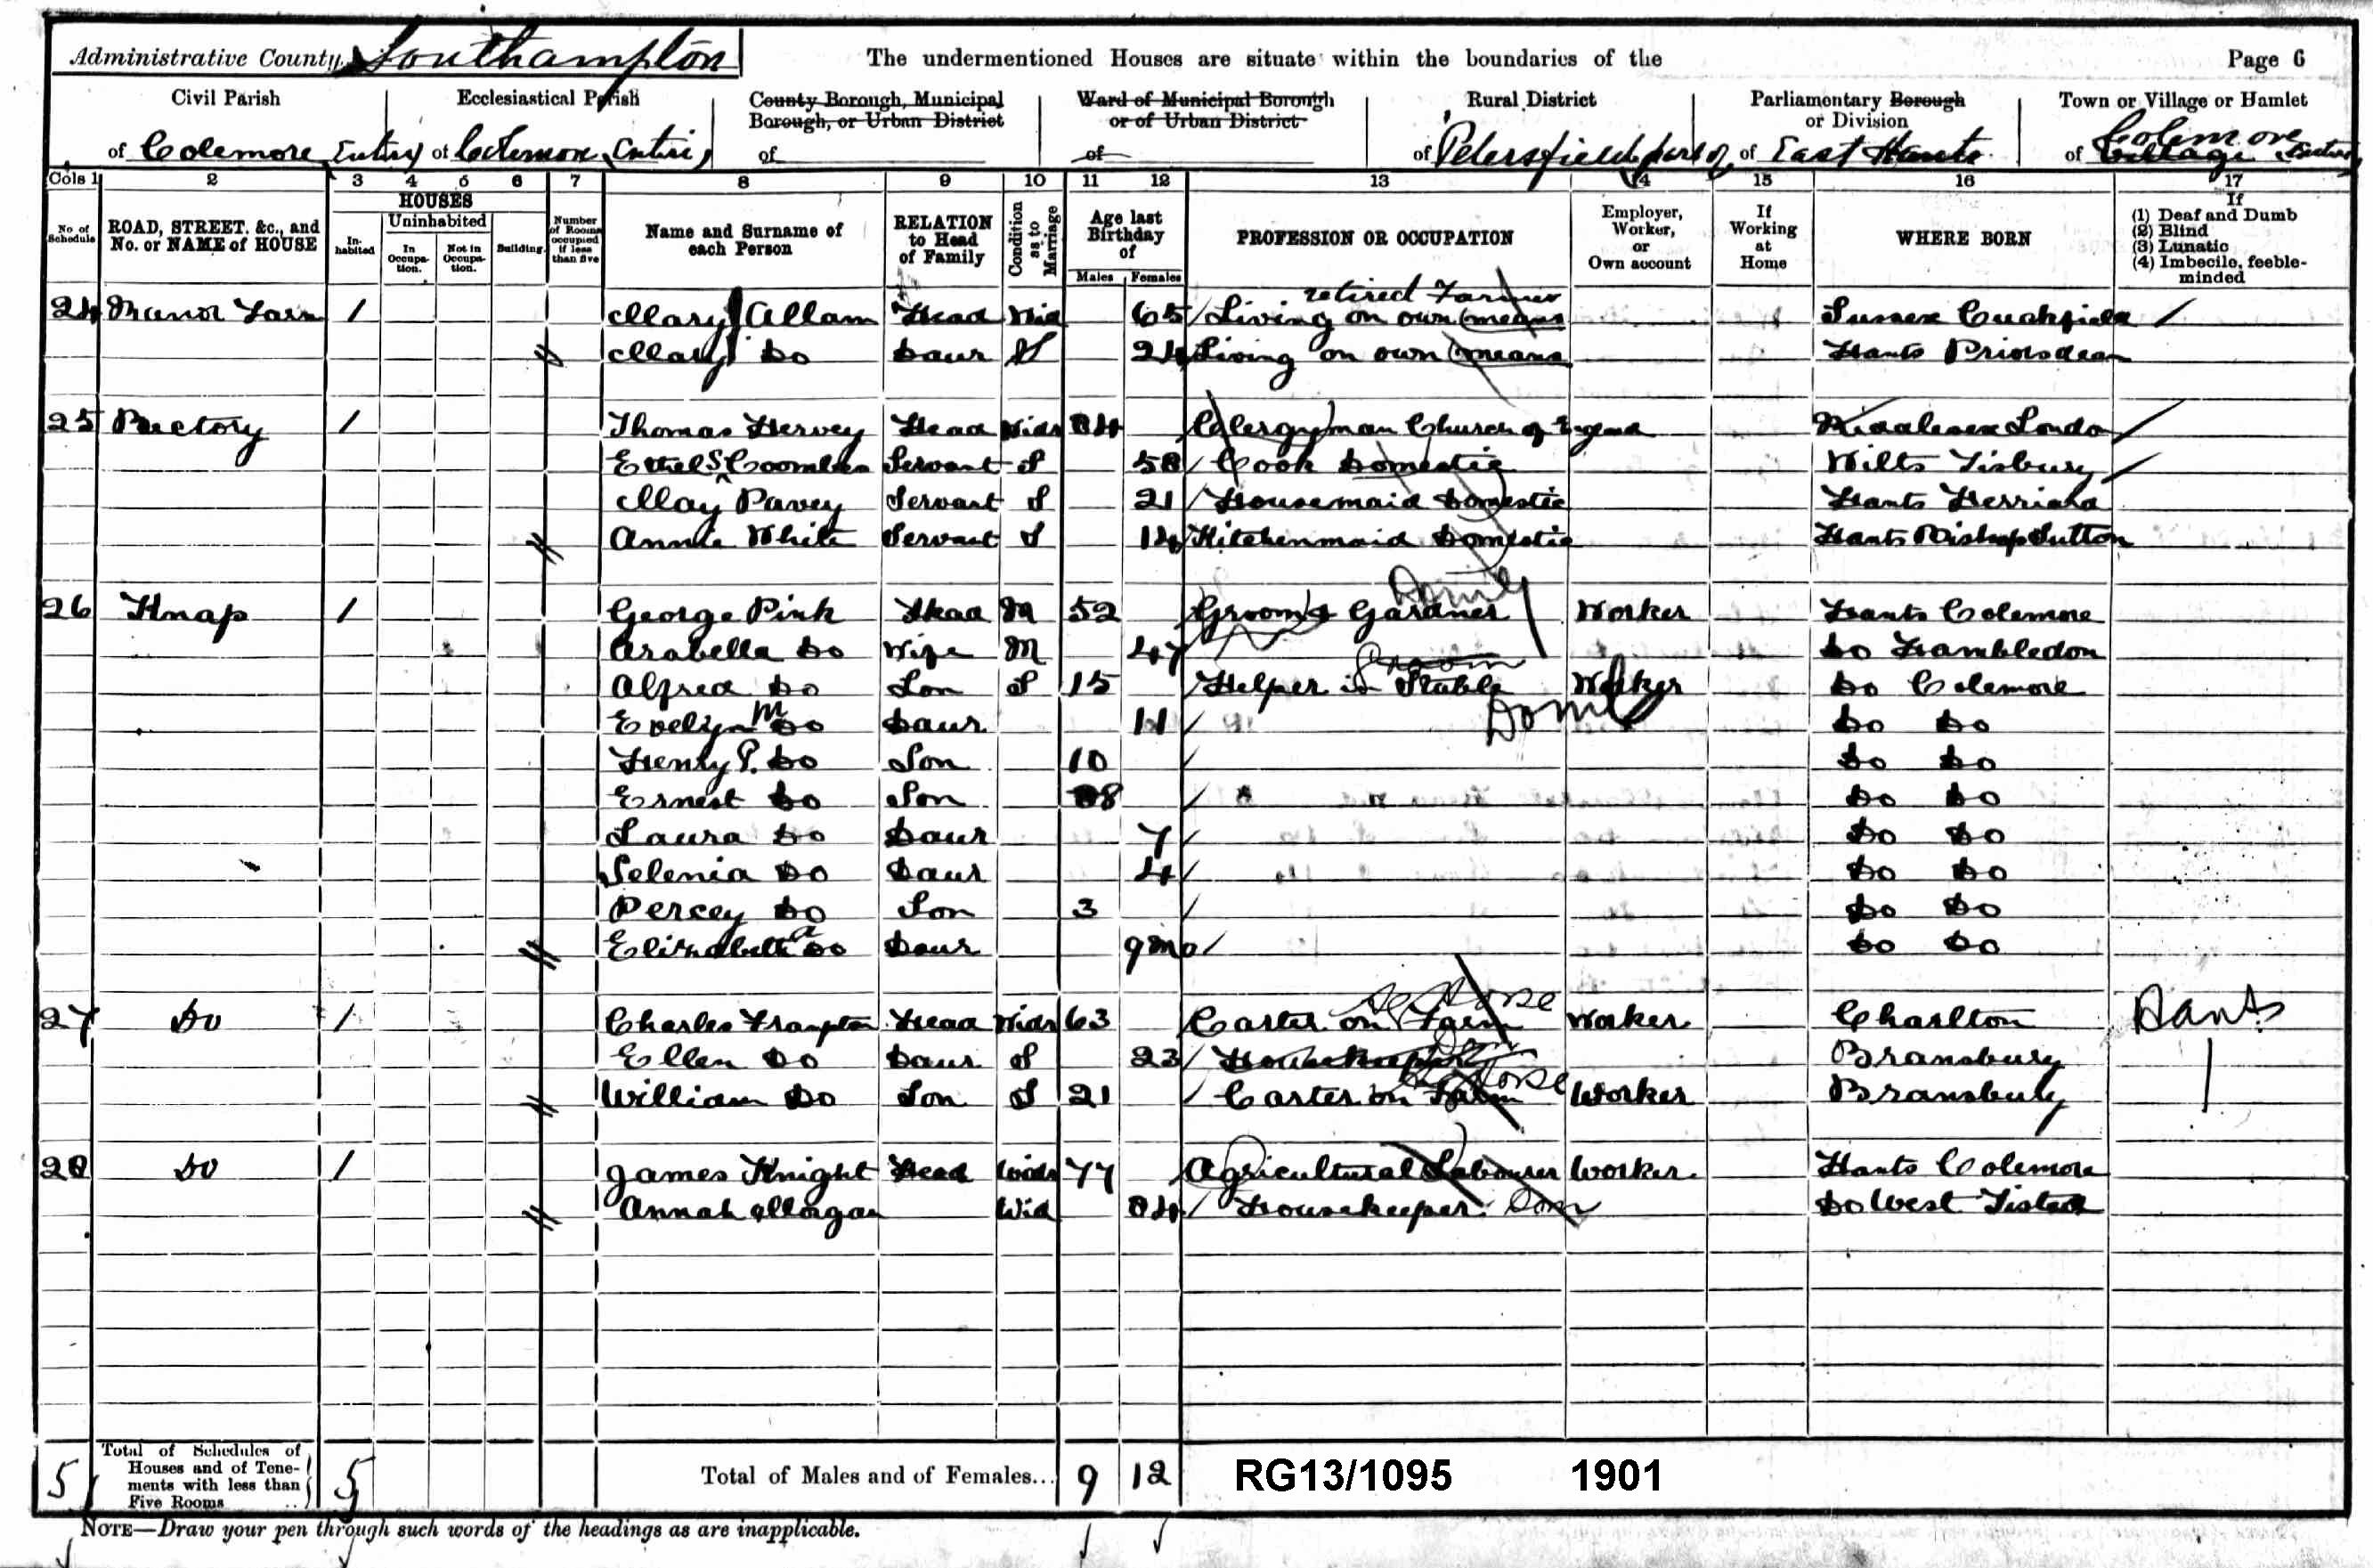 Administrative County Southampton The undermentioned Houses are situate within the boundaries of the Page 6
Civil Parish Ecclesiastical Parish County Borough, Municipal Borough, or Urban District Ward of Municipal Borough or of Urban District Rural District Parliamentary Borough or Division Town or Village or Hamlet
of Colemore Entire of Colemore Entire of of of Petersfield part of of East Hants of Colemore Village Entire
Cols 1 2 3 4 5 6 7 8 9 10 11 12 13 14 15 16 17
No of Schedule ROAD, STREET. &c., and No. or NAME of HOUSE HOUSES Inhabited Uninhabited In Occupation. Not in Occupation. Building. Number of Rooms occupied if less than five Name and Surname of each Person RELATION to Head of Family Condition as to Marriage Age last Birthday of Males Females PROFESSION OR OCCUPATION Employer, Worker, or Own account If Working at Home WHERE BORN If (1) Deaf and Dumb (2) Blind (3) Lunatic (4) Imbecile, feeble-minded
retired Farmer
24 Manor Farm 1 Mary Allam Head Wid 65 Living on own means Sussex Cuckfield
Mary Do Daur S 24 Living on own means Hants Priorsdean
25 Rectory 1 Thomas Hervey Head Widr 84 Clergyman Church of England Middlesex London
Ethel S Coombes Servant S 58 Cook Domestic Wilts Tisbury
May Pavey Servant S 21 Housemaid Domestic Hants Herriard
Annie White Servant S 14 Kitchenmaid Domestic Hants Bishop Sutton
Domic
26 Knap 1 George Pink Head M 52 Groom & Gardner Worker Hants Colemore
Arabella Do Wife M 47 Do Hambledon
Groom
Alfred Do Son S 15 Helper in Stable Worker Do Colemore
Domic
Evelyn M Do Daur 11 Do Do
Henry P. Do Son 10 Do Do
Ernest Do Son 8 Do Do
Laura Do Daur 7 Do Do
Selenia Do Daur 4 Do Do
Percey Do Son 3 Do Do
Elizabeth A Do Daur 9 mo Do Do
Horse
27 Do 1 Charles Frampton Head Widr 63 Carter on Farm Worker Charlton Hants
Dom
Ellen Do Daur S 23 Housekeeper Bransbury
Horse
William Do Son S 21 Carter on Farm Worker Bransbury
28 Do 1 James Knight Head Widr 77 Agricultural Labourer Worker Hants Colemore
Annah Morgan Wid 84 Housekeeper Dom Do West Tisted
5 Total of Schedules of Houses and of Tenements with less than Five Rooms 5 Total of Males and of Females... 9 12 RG13/1095 1901
NOTE—Draw your pen through such words of the headings as are inapplicable.